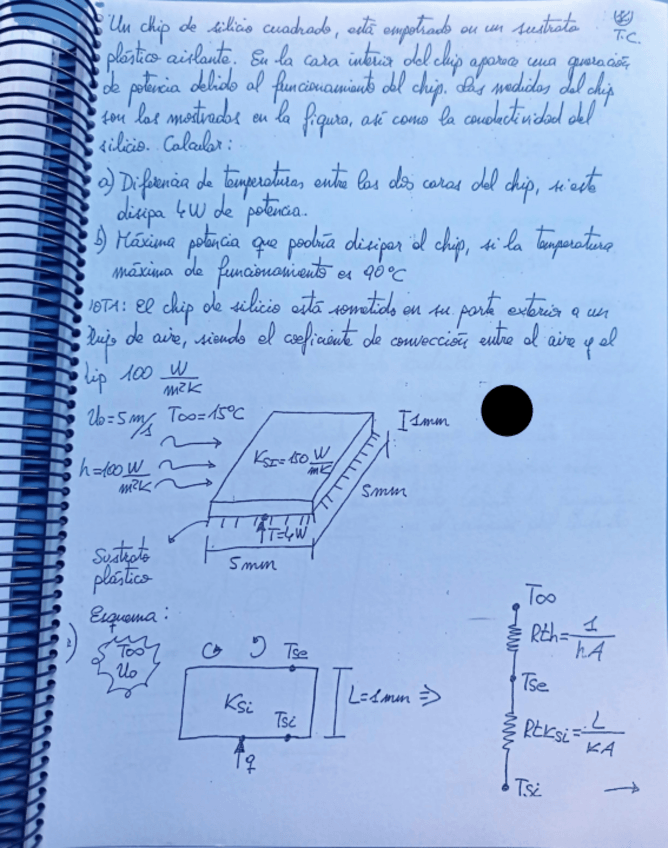 Un chip de silicio cuadrado, está empotrado en un sustrato
T.C.
plástico aislante. En la cara interior del chip aparece una generación
de potencia debido al funcionamiento del chip. Las medidas del chip
son las mostradas en la figura, así como la conductividad del
silicio. Calcular:
a) Diferencia de temperaturas entre las dos caras del chip, si este
disipa 4W de potencia.
b) Máxima potencia que podría disipar el chip, si la temperatura
máxima de funcionamiento es 90°C
NOTA: El chip de silicio está sometido en su parte exterior a un
flujo de aire, siendo el coeficiente de convección entre el aire y el
chip 100 W/m²K
U0=5m/s T∞=15°C
h=100 W/m²K
KSI=150 W/mK
1mm
5mm
T=4W
5mm
Sustrato
plástico
Esquema:
T∞
U0
Tse
KSi
Tsi
L=1mm ⇒
q
T∞
Rth=1/hA
Tse
RtKSi=L/KA
Tsi →